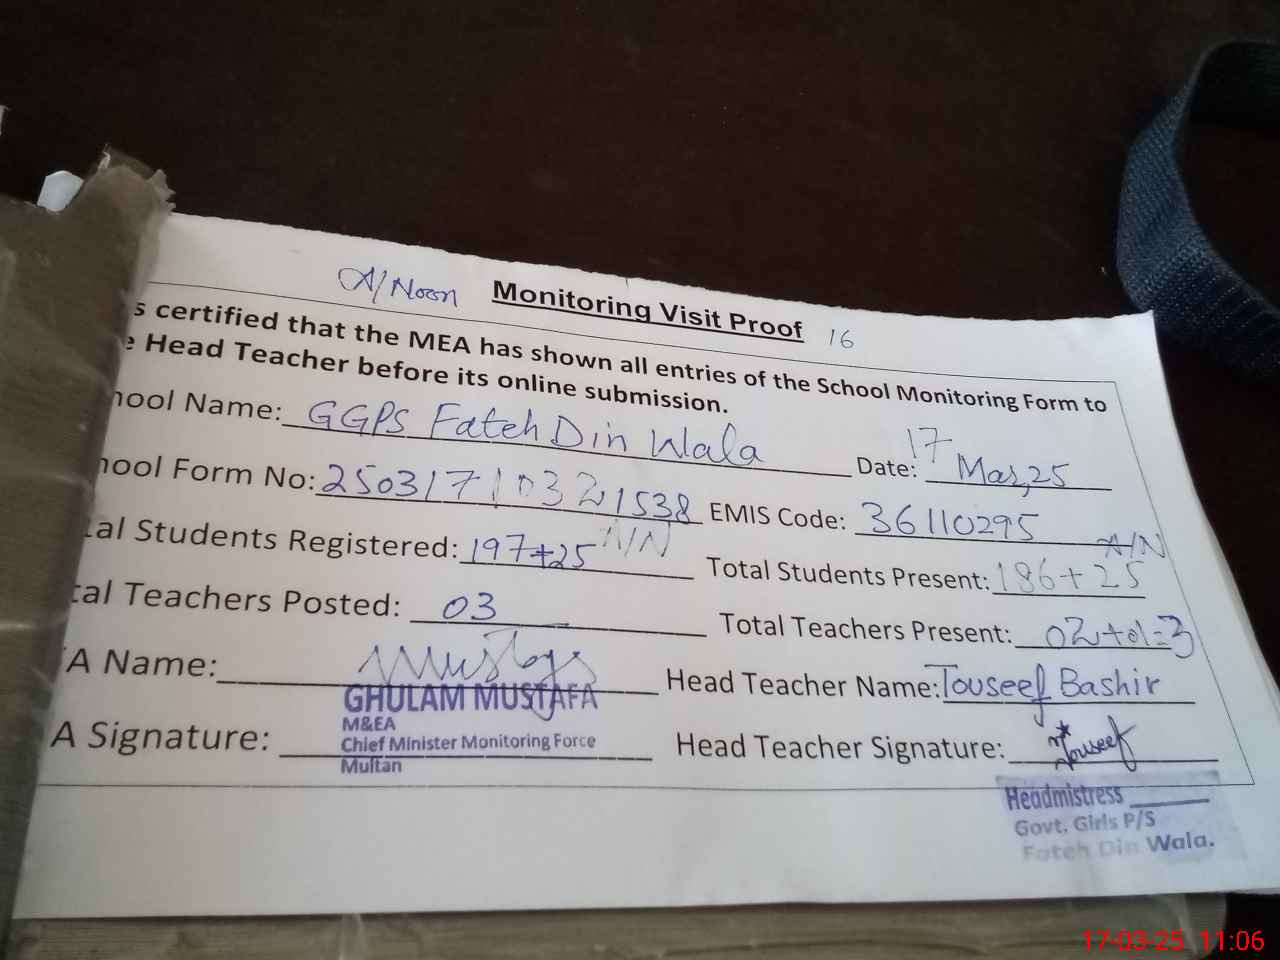 A/Noon Monitoring Visit Proof 16
s certified that the MEA has shown all entries of the School Monitoring Form to
e Head Teacher before its online submission.
hool Name: GGPS Fateh Din Wala Date: 17 Mar, 25
hool Form No: 25031710321538 EMIS Code: 36110295
tal Students Registered: 197+25 A/N Total Students Present: 186+25 A/N
tal Teachers Posted: 03 Total Teachers Present: 02+01=3
A Name: Head Teacher Name: Touseef Bashir
GHULAM MUSTAFA
M&EA
A Signature: Chief Minister Monitoring Force Head Teacher Signature: Touseef
Multan
Headmistress
Govt. Girls P/S
Fateh Din Wala.
17-03-25 11:06